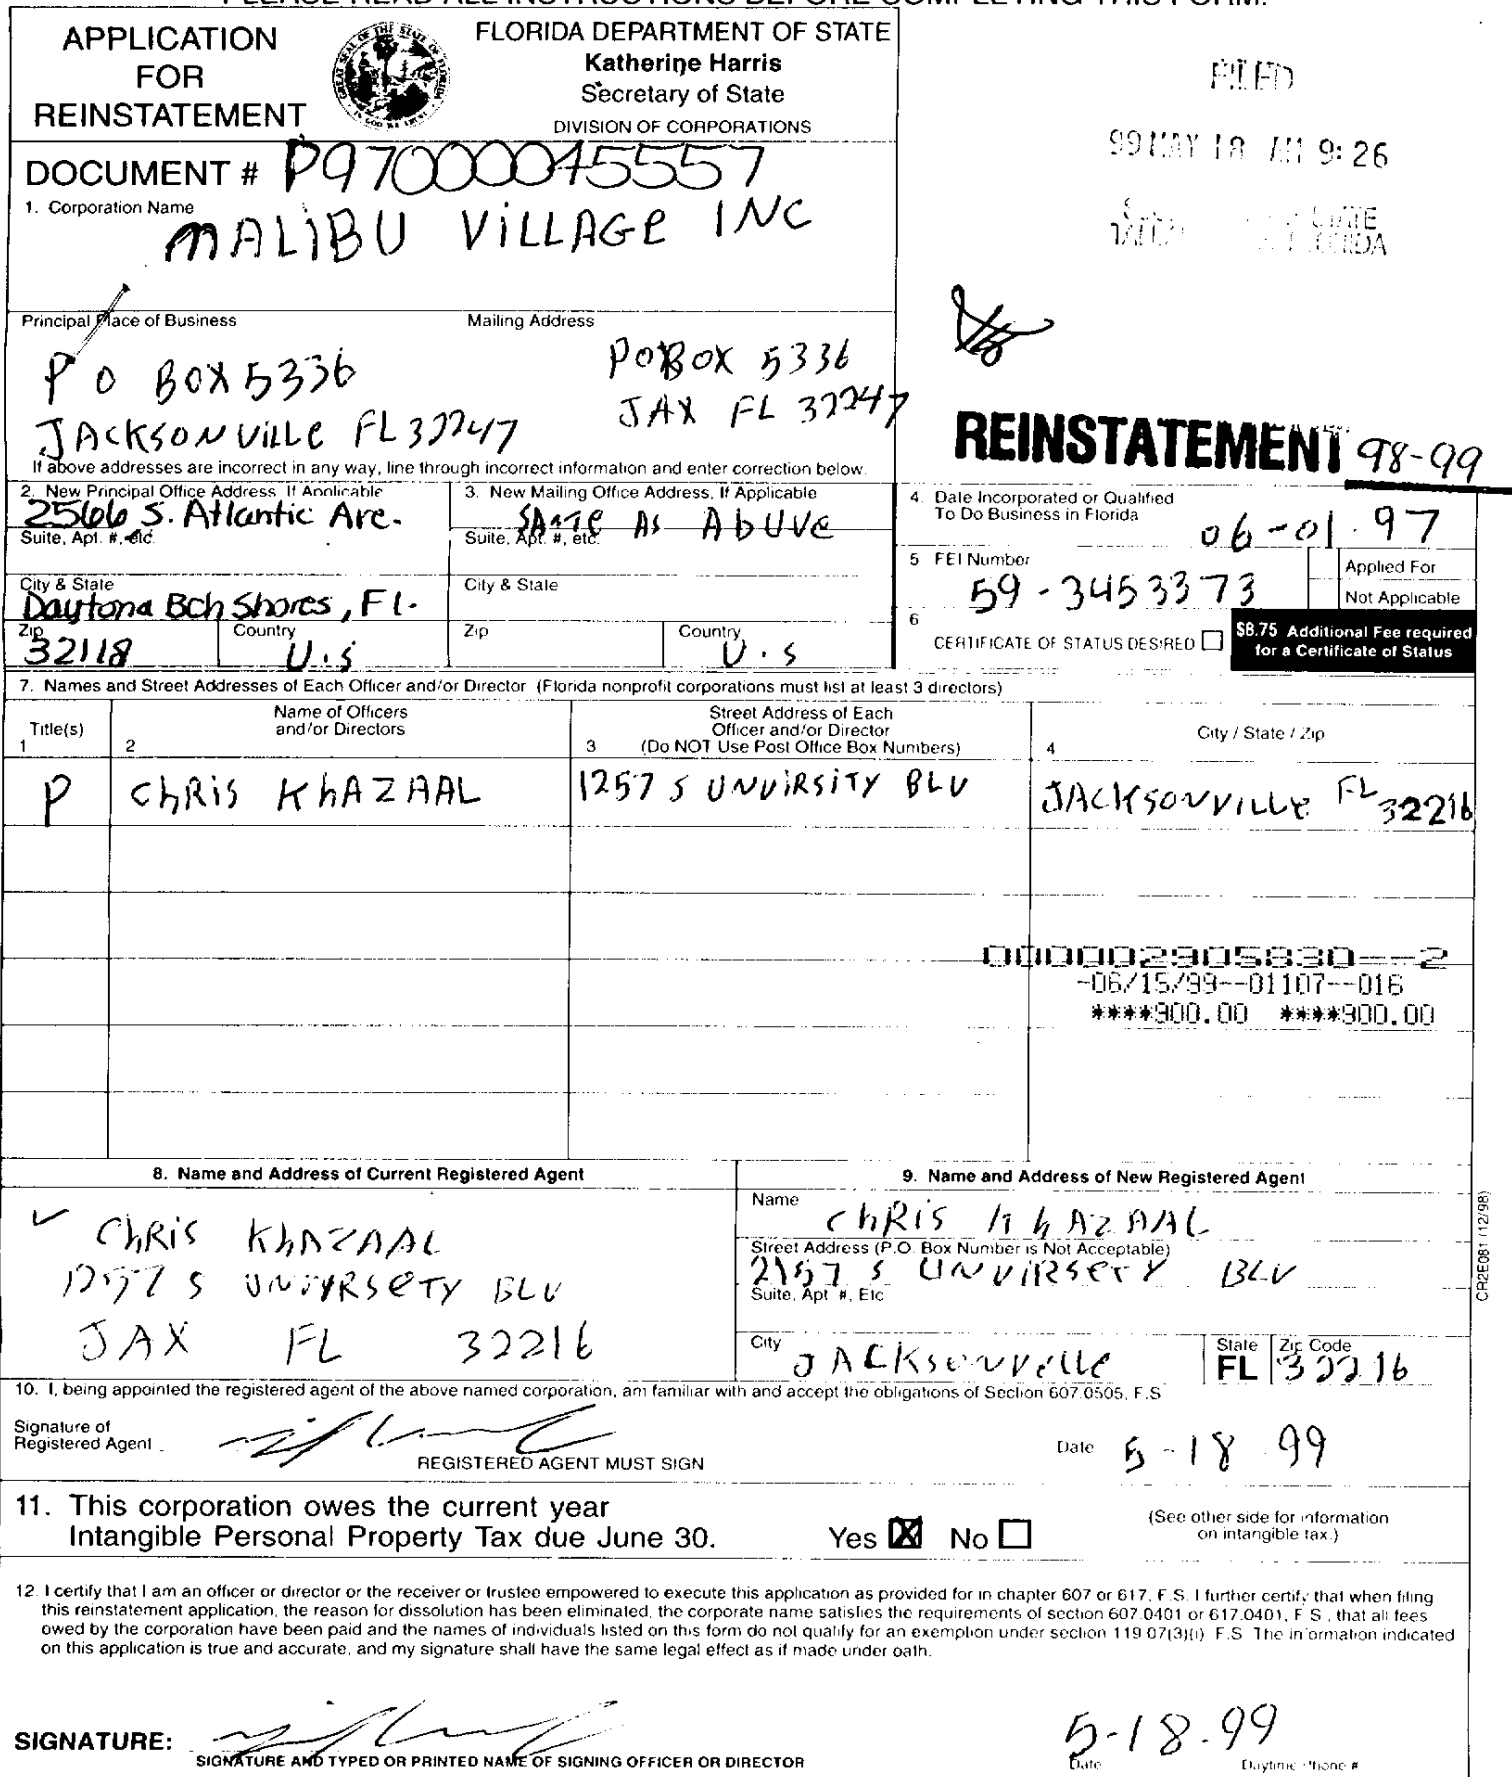 PLEASE READ ALL INSTRUCTIONS BEFORE COMPLETING THIS FORM.
APPLICATION
FOR
REINSTATEMENT
FLORIDA DEPARTMENT OF STATE
Katherine Harris
Secretary of State
DIVISION OF CORPORATIONS
FILED
99 MAY 18 AM 9:26
STATE
FLORIDA
DOCUMENT # P97000045557
1. Corporation Name
MALIBU VILLAGE INC
Principal Place of Business
Mailing Address
P O BOX 5336
JACKSONVILLE FL 32247
PO BOX 5336
JAX FL 32247
If above addresses are incorrect in any way, line through incorrect information and enter correction below.
REINSTATEMENT 98-99
2. New Principal Office Address, If Applicable
2566 S. Atlantic Ave.
Suite, Apt. #, etc.
City & State
Daytona Bch Shores, Fl.
Zip
32118
Country
U.S
3. New Mailing Office Address, If Applicable
SAME AS ABUVE
Suite, Apt. #, etc.
City & State
Zip
Country
U.S
4. Date Incorporated or Qualified
To Do Business in Florida
06-01.97
5 FEI Number
59-3453373
Applied For
Not Applicable
6
CERTIFICATE OF STATUS DESIRED
$8.75 Additional Fee required
for a Certificate of Status
7. Names and Street Addresses of Each Officer and/or Director (Florida nonprofit corporations must list at least 3 directors)
Title(s)
1
Name of Officers
and/or Directors
2
Street Address of Each
Officer and/or Director
3 (Do NOT Use Post Office Box Numbers)
City / State / Zip
4
P
CHRIS KHAZAAL
1257 S UNVIRSITY BLV
JACKSONVILLE FL 32216
000002905830--2
-06/15/99--01107--016
****900.00 ****900.00
8. Name and Address of Current Registered Agent
CHRIS KHAZAAL
1257 S UNVYRSETY BLV
JAX FL 32216
9. Name and Address of New Registered Agent
Name
CHRIS KHAZAAL
Street Address (P.O. Box Number is Not Acceptable)
2157 S UNVIRSETY BLV
Suite, Apt #, Etc
City
JACKSONVELLE
State
FL
Zip Code
32216
CR2E081 (12/98)
10. I, being appointed the registered agent of the above named corporation, am familiar with and accept the obligations of Section 607.0505, F.S
Signature of
Registered Agent
REGISTERED AGENT MUST SIGN
Date 5-18 99
11. This corporation owes the current year
Intangible Personal Property Tax due June 30.
Yes No
(See other side for information
on intangible tax.)
12. I certify that I am an officer or director or the receiver or trustee empowered to execute this application as provided for in chapter 607 or 617, F.S. I further certify that when filing
this reinstatement application, the reason for dissolution has been eliminated, the corporate name satisfies the requirements of section 607.0401 or 617.0401, F S , that all fees
owed by the corporation have been paid and the names of individuals listed on this form do not qualify for an exemption under section 119.07(3)(i) F.S The information indicated
on this application is true and accurate, and my signature shall have the same legal effect as if made under oath.
SIGNATURE:
SIGNATURE AND TYPED OR PRINTED NAME OF SIGNING OFFICER OR DIRECTOR
5-18.99
Date
Daytime Phone #